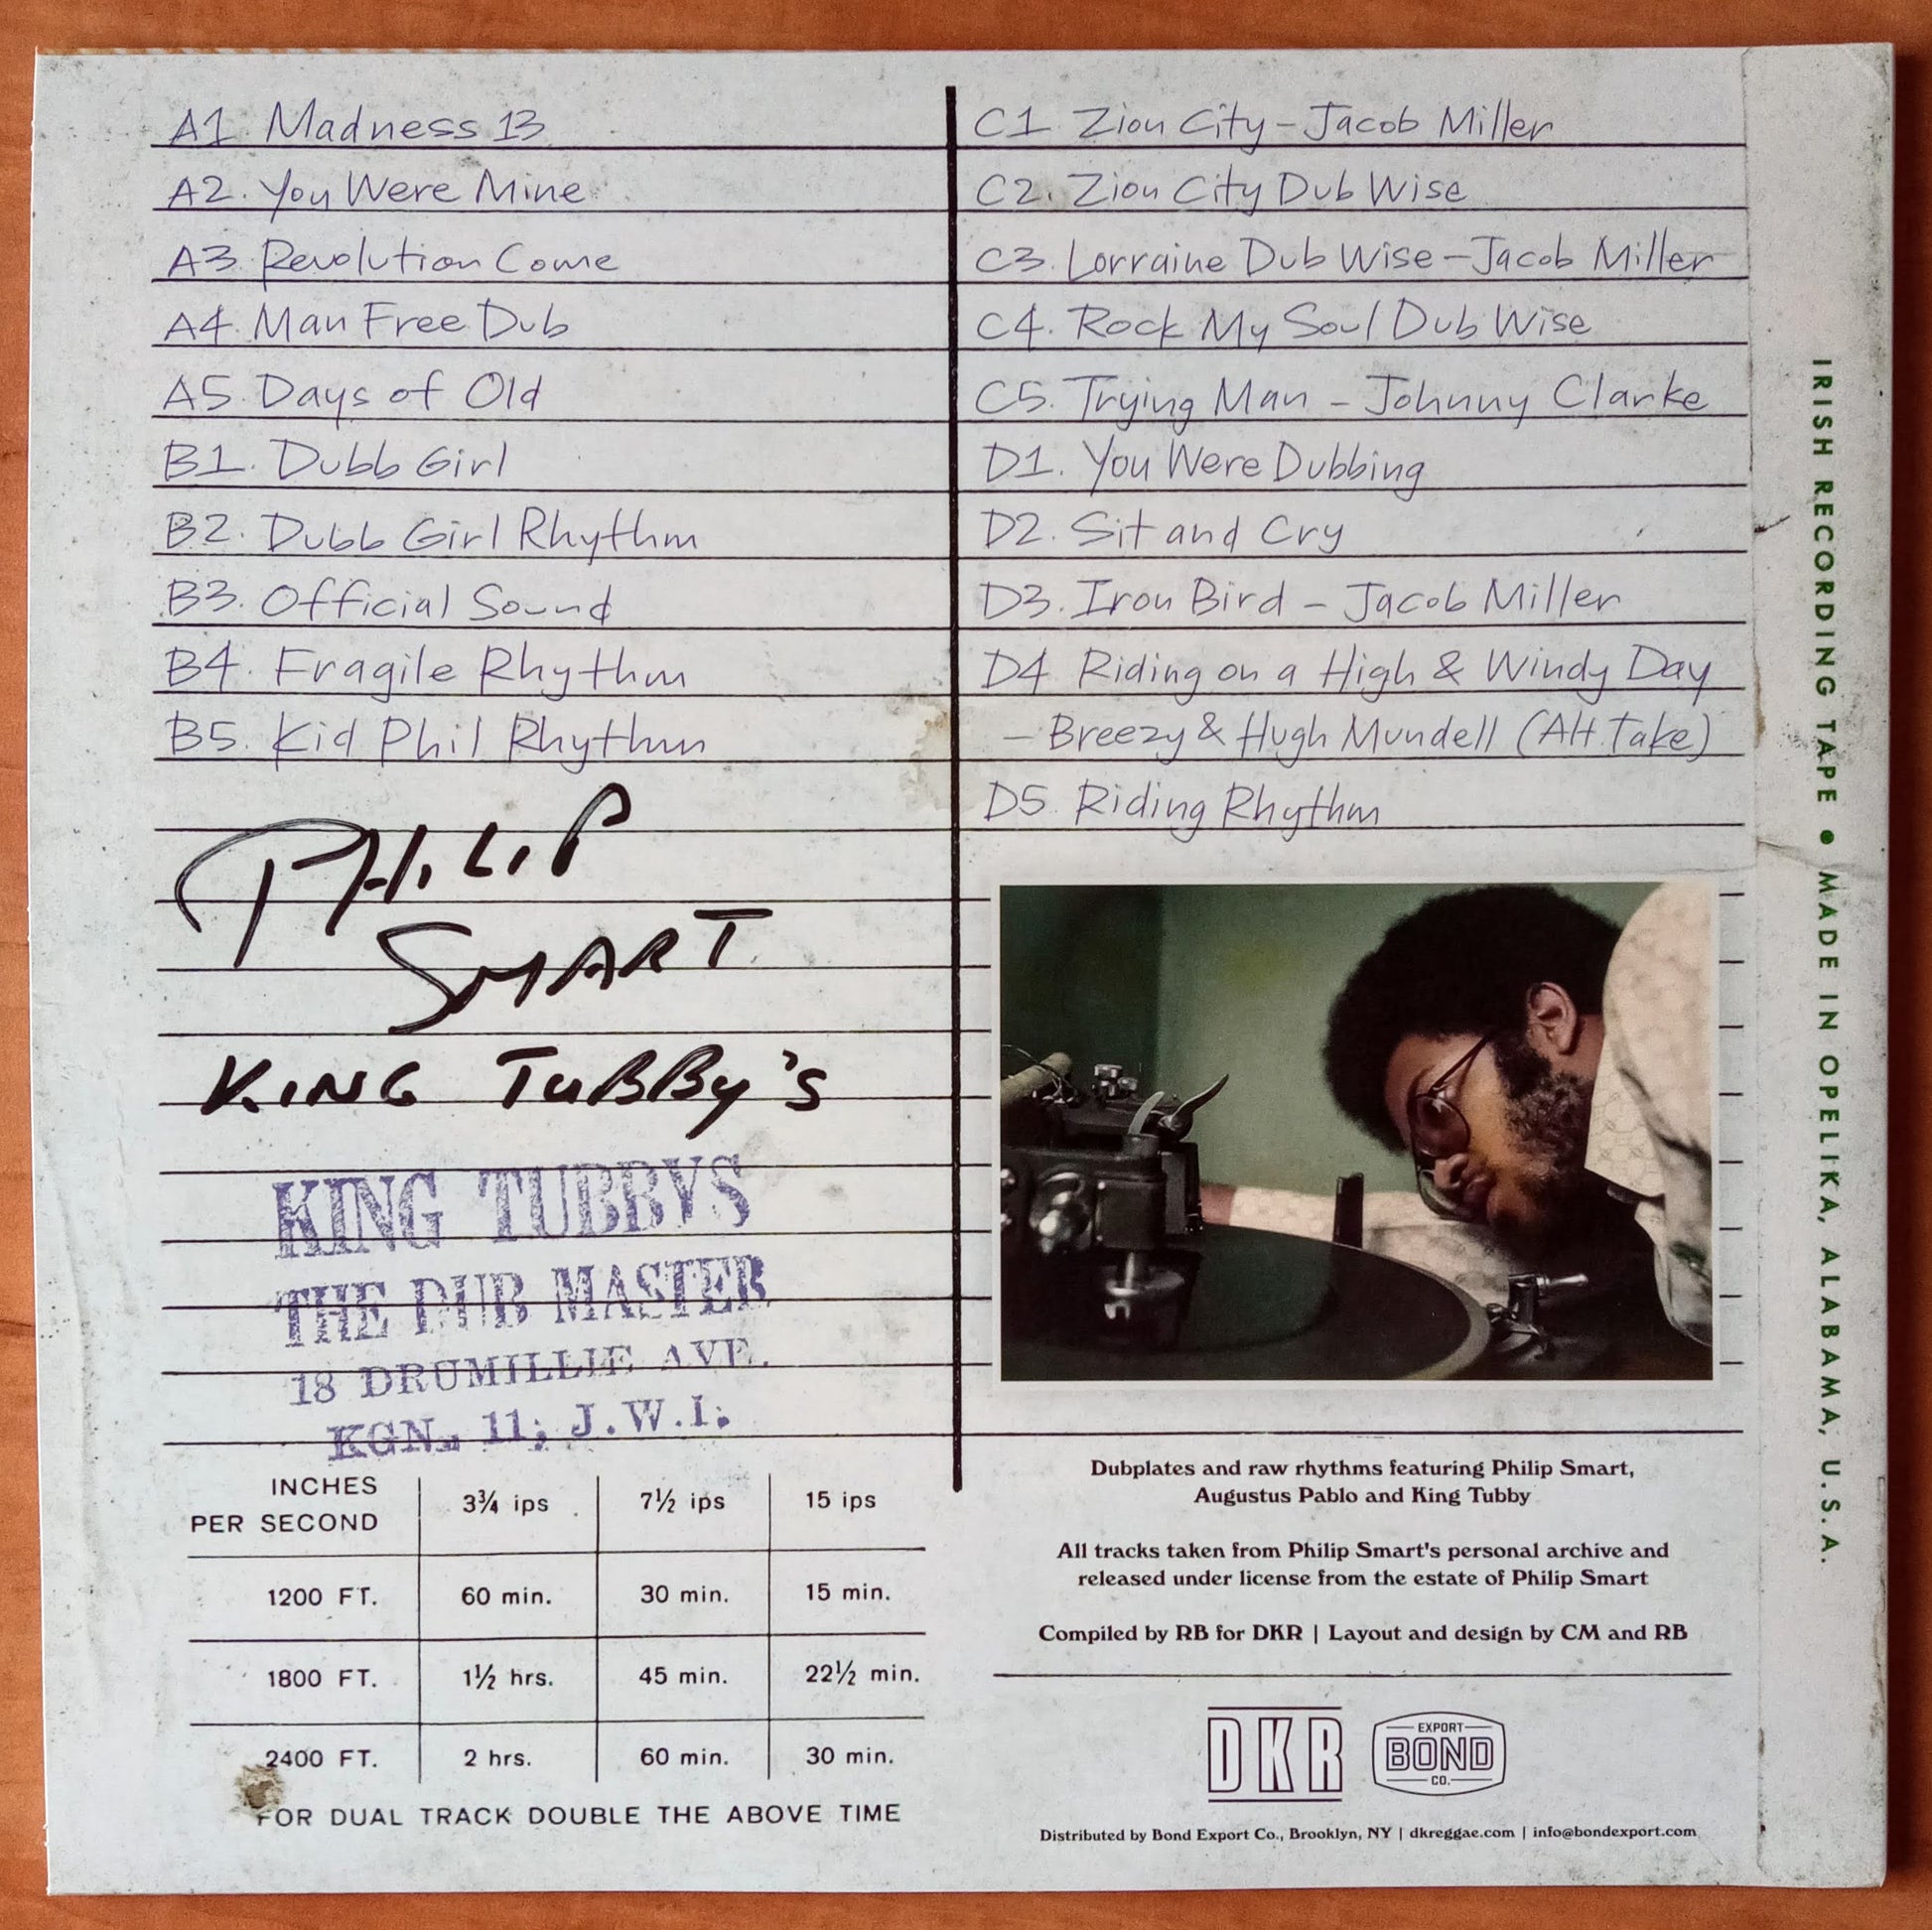 A1. Madness 13
A2. You Were Mine
A3. Revolution Come
A4. Man Free Dub
A5. Days of Old
B1. Dubb Girl
B2. Dubb Girl Rhythm
B3. Official Sound
B4. Fragile Rhythm
B5. Kid Phil Rhythm
PHILIP
SMART
KING TuBBy's
KING TUBBYS
THE DUB MASTER
18 DRUMILLIE AVE.
KGN. 11; J.W.I.
INCHES
PER SECOND
3¾ ips
7½ ips
15 ips
1200 FT.
60 min.
30 min.
15 min.
1800 FT.
1½ hrs.
45 min.
22½ min.
2400 FT.
2 hrs.
60 min.
30 min.
FOR DUAL TRACK DOUBLE THE ABOVE TIME
C1. Zion City - Jacob Miller
C2. Zion City Dub Wise
C3. Lorraine Dub Wise - Jacob Miller
C4. Rock My Soul Dub Wise
C5. Trying Man - Johnny Clarke
D1. You Were Dubbing
D2. Sit and Cry
D3. Iron Bird - Jacob Miller
D4 Riding on a High & Windy Day
- Breezy & Hugh Mundell (Alt. Take)
D5. Riding Rhythm
Dubplates and raw rhythms featuring Philip Smart,
Augustus Pablo and King Tubby
All tracks taken from Philip Smart's personal archive and
released under license from the estate of Philip Smart
Compiled by RB for DKR | Layout and design by CM and RB
DKR
EXPORT
BOND
CO.
Distributed by Bond Export Co., Brooklyn, NY | dkreggae.com | info@bondexport.com
IRISH RECORDING TAPE ● MADE IN OPELIKA, ALABAMA, U.S.A.